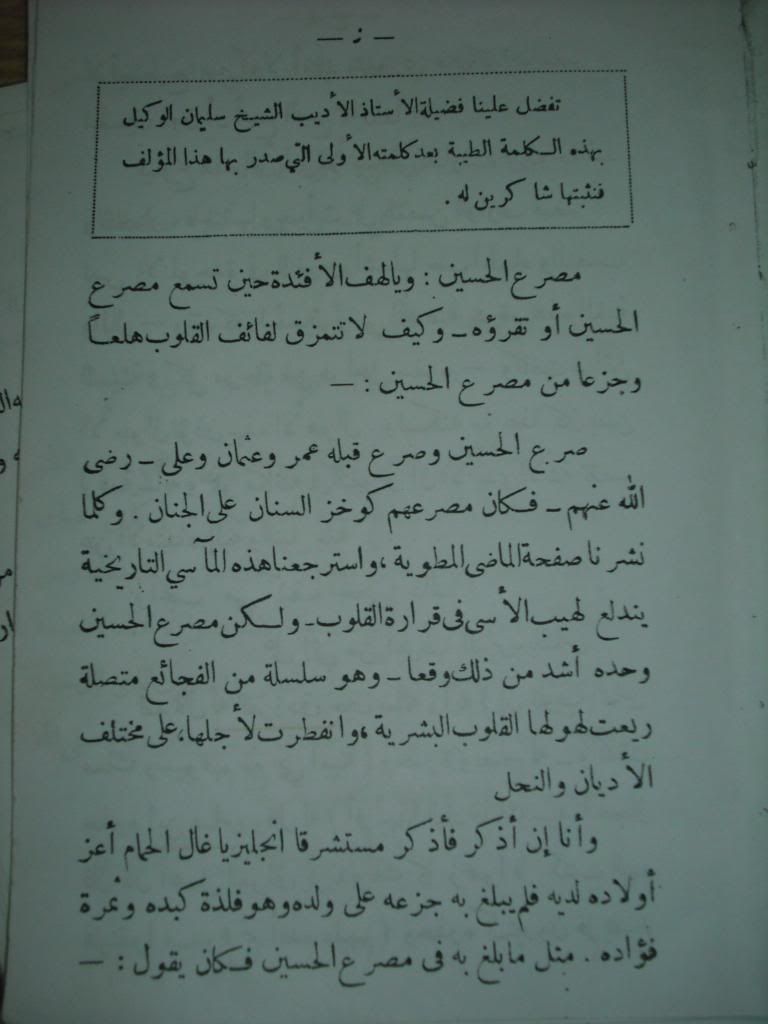 — ز —
تفضل علينا فضيلة الأستاذ الأديب الشيخ سليمان الوكيل
بهذه الكلمة الطيبة بعد كلمته الأولى التي صدر بها هذا المؤلف
فنثبتها شاكرين له .
مصرع الحسين : ويالهف الأفئدة حين تسمع مصرع
الحسين أو تقرؤه ــ وكيف لا تتمزق لفائف القلوب هلعاً
وجزعا من مصرع الحسين : —
صرع الحسين وصرع قبله عمر وعثمان وعلى ــ رضى
الله عنهم ــ فكان مصرعهم كوخز السنان على الجنان . وكلما
نشرنا صفحة الماضى المطوية ، واسترجعنا هذه المآسي التاريخية
يندلع لهيب الأسى فى قرارة القلوب ــ ولكن مصرع الحسين
وحده أشد من ذلك وقعا ــ وهو سلسلة من الفجائع متصلة
ريعت لهولها القلوب البشرية ، وانفطرت لأجلها ، على مختلف
الأديان والنحل
وأنا إن أذكر فأذكر مستشرقا انجليزيا غال الحمام أعز
أولاده لديه فلم يبلغ به جزعه على ولده وهو فلذة كبده وثمرة
فؤاده . مثل ما بلغ به فى مصرع الحسين فكان يقول : —